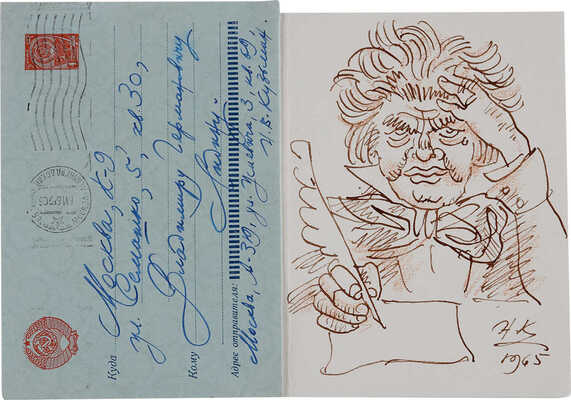 Куда Москва, К-9
ул. Семашко, 5, кв. 30,
Кому Владимиру Германовичу
Лидину.
Адрес отправителя:
Москва, А-319, ул. Усиевича, 3, кв. 69,
Н. В. Кузьмин
НК
1965